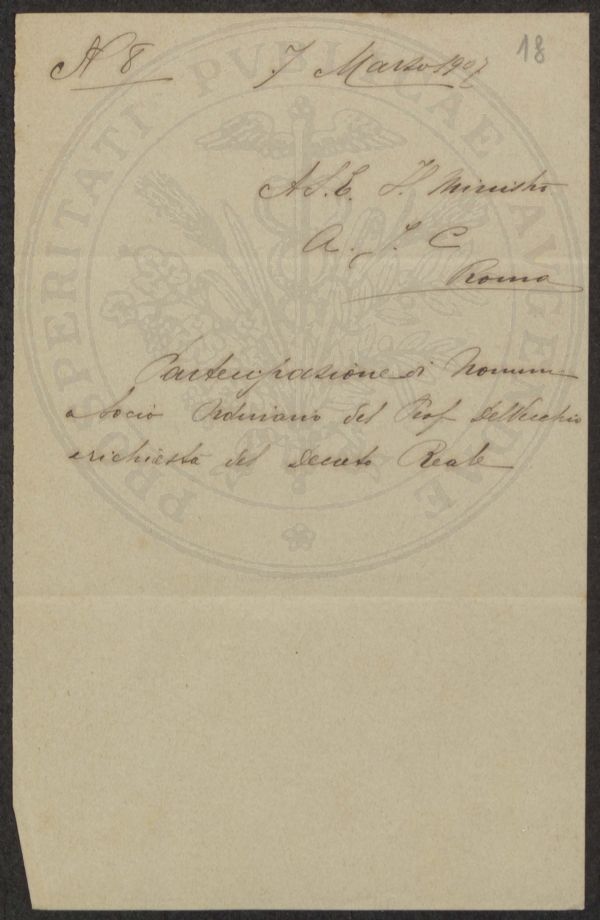 18
N 8 7 Marzo 1907
A S. E. Il Ministro
A. I. C
Roma
Partecipazione di Nomina
a Socio Ordinario del Prof Del Vecchio
e richiesta del Decreto Reale
PROSPERITATI PVBLICAE AVGENDAE